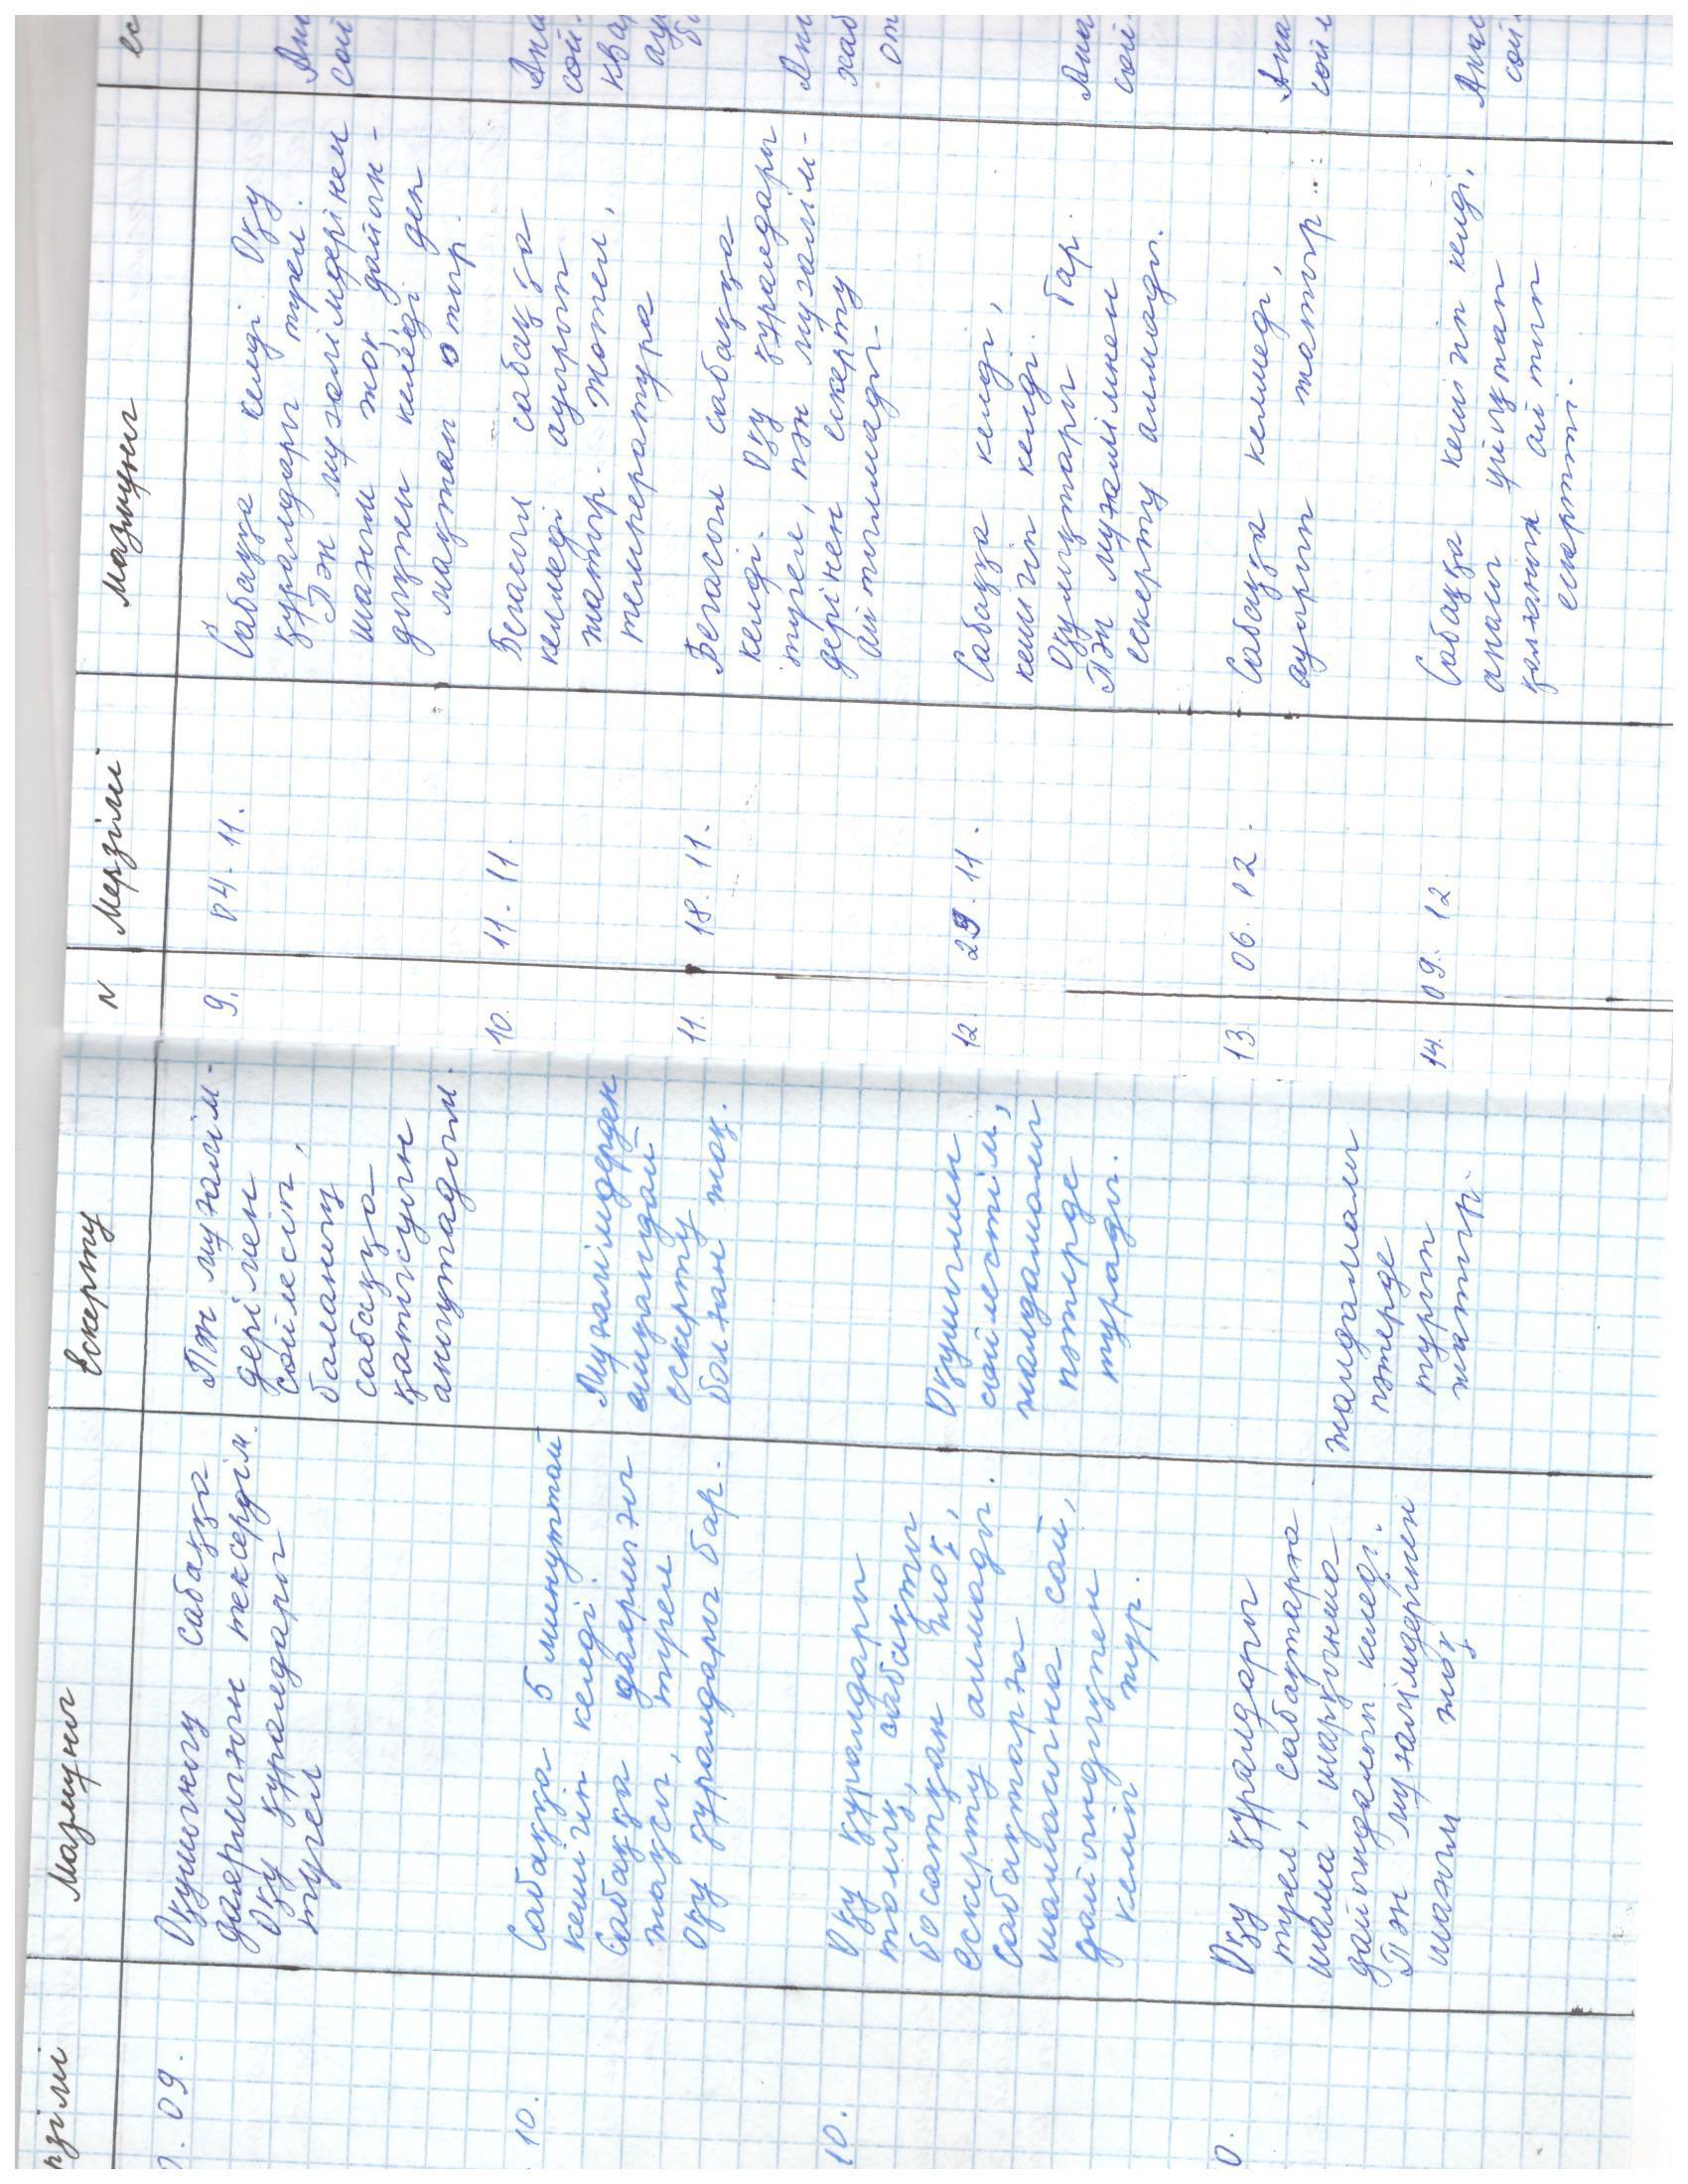 Мазмұны
Ескерту
09.
Оқушының сабаққа
даярлығын тексердім.
Оқу құралдары
түгел
Пән мұғалім-
дерімен
сөйлесіп,
баланың
сабаққа
қатысуын
анықтадым.
10.
Сабаққа 5 минуттай
кешігіп келді
Сабаққа даярлығы
жақсы, түгел
оқу құралдары бар.
Мұғалімдерден
ешқандай
ескерту
болған жоқ.
10.
Оқу құралдары
толық, сабақты
босатқан жоқ,
ескерту алмады.
Сабақтарға
шамасына сай,
дайындықпен
келіп жүр.
Оқушымен
сөйлестім,
жалдамалы
пәтерде
тұрады.
0.
Оқу құралдары
түгел, сабақтарға
шама шарқынша
дайындалып келеді.
Пән мұғалімдерінен
шағым жоқ
жалдамалы
пәтерде
тұрып
жатыр
N Мерзімі Мазмұны
9. 04. 11.
Сабаққа келді Оқу
құралдары түгел.
Пән мұғалімдерінен
шағым жоқ дайын-
дықпен келеді деп
мақтап отыр.
Ана
сөй
10. 11. 11.
Бегасыл сабаққа
келмеді ауырып
жатыр. Жөтел,
температура
Ана
сөй
ква
ау
11. 18. 11.
Бегасыл сабаққа
келді. Оқу құралдары
түгел, пән мұғалім-
дерінен ескерту
айтылмады
хаб
от
12. 29. 11.
Сабаққа келді,
кешігіп келді.
Оқулықтары бар.
Пән мұғалімінен
ескерту алмады.
Ана
сөй
13. 06. 12.
Сабаққа келмеді,
ауырып жатыр...
Ана
сөйл
14. 09. 12.
Сабаққа кешігіп келді,
анасы ұйықтап
қалғанын айтып
ескертті.
Ана
сөй